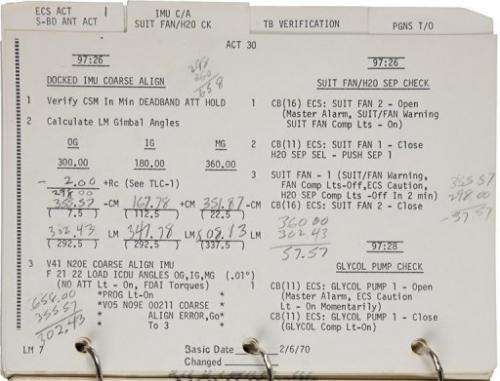 ECS ACT
S-BD ANT ACT
IMU C/A
SUIT FAN/H2O CK
TB VERIFICATION
PGNS T/O
ACT 30
97:26
DOCKED IMU COARSE ALIGN
298
360
658
1 Verify CSM In Min DEADBAND ATT HOLD
2 Calculate LM Gimbal Angles
OG IG MG
300.00 180.00 360.00
- 2.00 +Rc (See TLC-1)
298.00
355.57 -CM 167.78 +CM 351.87 -CM
( 7.5 ) ( 112.5 ) ( 22.5 )
302.43 LM 347.78 LM 008.13 LM
(292.5 ) (292.5 ) (337.5 )
3 V41 N20E COARSE ALIGN IMU
F 21 22 LOAD ICDU ANGLES OG,IG,MG (.01°)
(NO ATT Lt - On, FDAI Torques)
*PROG Lt-On *
*V05 N09E 00211 COARSE *
* ALIGN ERROR,Go*
* To 3 *
658.00
355.57
302.43
97:26
SUIT FAN/H2O SEP CHECK
1 CB(16) ECS: SUIT FAN 2 - Open
(Master Alarm, SUIT/FAN Warning
SUIT FAN Comp Lts - On)
2 CB(11) ECS: SUIT FAN 1 - Close
H2O SEP SEL - PUSH SEP 1
3 SUIT FAN - 1 (SUIT/FAN Warning,
FAN Comp Lts-Off,ECS Caution,
H2O SEP Comp Lts -Off In 2 min)
CB(16) ECS: SUIT FAN 2 - Close
355.57
298.00
57.57
360.00
302.43
57.57
97:28
GLYCOL PUMP CHECK
1 CB(11) ECS: GLYCOL PUMP 1 - Open
(Master Alarm, ECS Caution
Lt - On Momentarily)
CB(11) ECS: GLYCOL PUMP 1 - Close
(GLYCOL Comp Lt-On)
LM 7
Basic Date 2/6/70
Changed